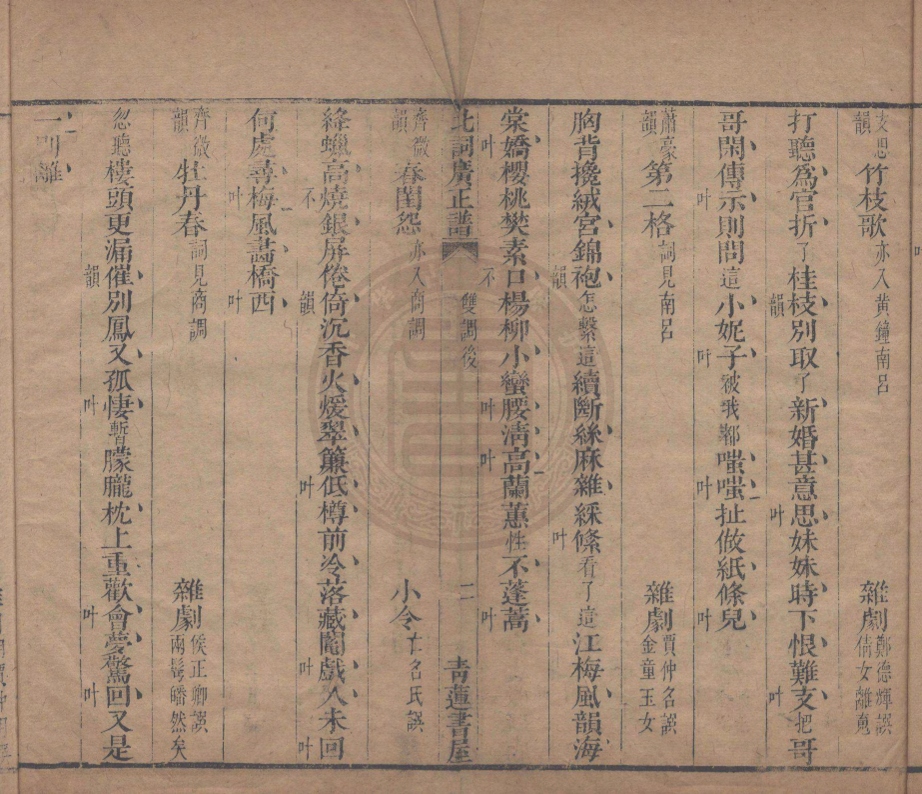 支思韻 竹枝歌 亦入黃鐘南呂 雜劇 鄭德輝譔倩女離䰟
打聽爲官折了桂枝別取了新婚甚意思妹妹時下恨難支把哥
哥閑傳示則問這小妮子被我都嗤嗤扯做紙條兒
蕭豪韻 第二格 詞見南呂 雜劇 賈仲名譔金童玉女
胸背攙絨宮錦袍怎繫這續斷絲麻雜綵絛看了這江梅風韻海
棠嬌櫻桃樊素口楊柳小蠻腰淸高蘭蕙性不蓬蒿
北詞廣正譜 雙調後 二 青蓮書屋
齊微韻 春閨怨 亦入商調 小令 亡名氏譔
絳蠟高燒銀屏倦倚沉香火煖翠簾低樽前冷落藏鬮戲人未回
何處尋梅風畵橋西
齊微韻 牡丹春 詞見商調 雜劇 侯正卿譔兩鬂皤然矣
忽聽樓頭更漏催別鳳又孤悽暫朦朧枕上重歡會夢驚回又是
一別離